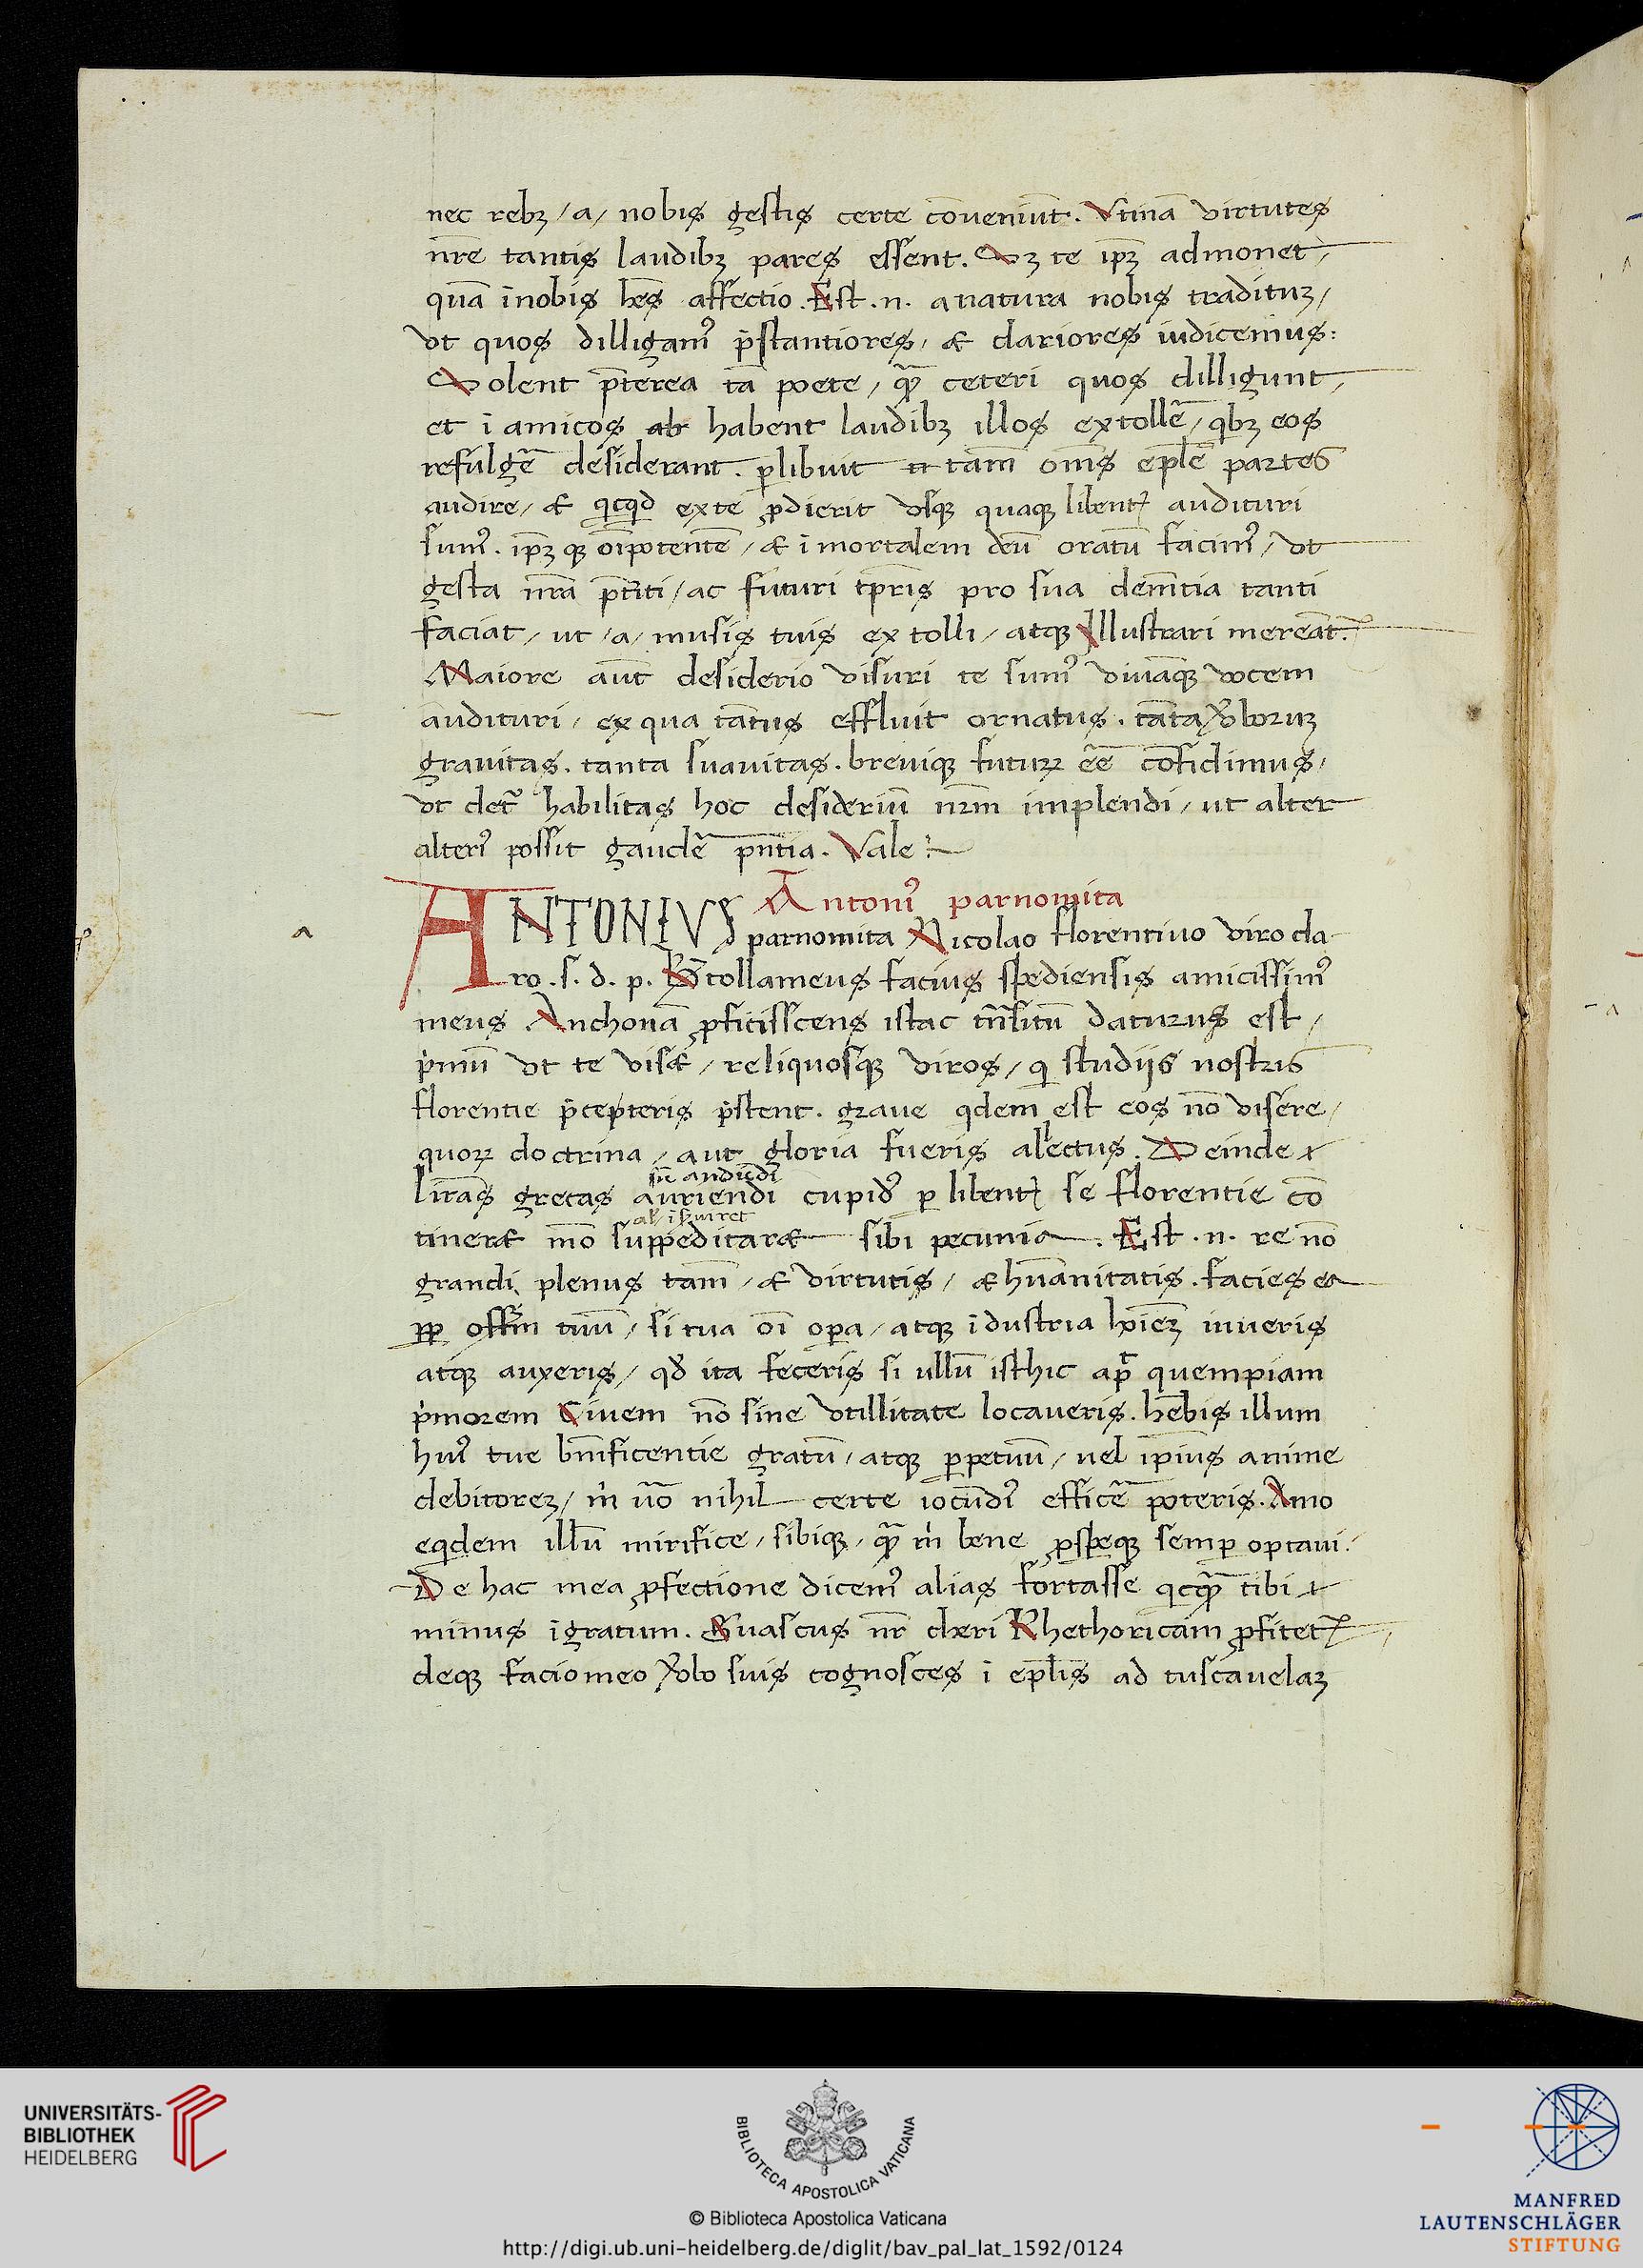 nec rebꝫ / a / nobis gestis certe cōveniūt. Vtinā virtutes
nr̄e tantis laudibꝫ pares essent. Sꝫ te ip̄ꝫ admonet /
quā īnobis hēs affectio. Est .n. anatura nobis tradituꝫ /
vt quos dilligam⁹ p̄stantiores / & clariores iudicemus:
Solent p̄terea tā poete / qᷓ ceteri quos dilligunt /
et ī amicos ab habent laudibꝫ illos extollē / qibꝫ eos
refulgē desiderant. ꝑlibuit tam̄ om̄s ep̄lē partes
audire / & qicqid exte ꝓdierit vsqꝫ quaqꝫ libent̄ audituri
sum⁹. ip̄ꝫ qꝫ oīpotentē / & īmortalem deū oratū facim⁹ / vt
gesta nr̄a p̄t̄iti / ac futuri tp̄ris pro sua clem̄tia tanti
faciat / ut / a / musis tuis extolli / atqꝫ Illustrari mereāt̄.
Maiore aūt desiderio visuri te sum⁹ vivāqꝫ vocem
audituri / ex qua tātus effluit ornatus. tāta ỽboruꝫ
gravitas. tanta suavitas. breviqꝫ futuꝝ eē cōfidimus /
vt det̄ habilitas hoc desideriū nr̄m implendi / ut alter
alteri⁹ possit gaudē pn̄tia. Vale :
Antoni⁹ parnomita
ANTONIVS parnomita Nicolao florentino viro cla-
ro .s. d. p. Btollameus facius spediensis amicissim⁹
meus Anchonā ꝓficissces istac trāsitū daturus est /
pimū vt te vis& / reliquosqꝫ viros / qi studijs nostris
florentie p̄cepteris p̄stent. grave qidem est eos nō visere /
quoꝝ doctrina / aut gloria fueris allectus. Deinde
līras grecas auriendi cupid⁹ ꝑ libent̄ se florentie cō
siue audiēdi
tiner& mō suppeditar& sibi pecunia. Est .n. re nō
grandi plenus tam̄ / & virtutis / & hūanitatis. facies ea
ꝓp offīm tuū / si tua oī oꝑa / atqꝫ īdustria hōiēꝫ iuveris
atqꝫ auxeris / qd̄ ita feceris si ullū isthic apᷓ quempiam
pimorem Civem nō sine vtillitate locaveris. hēbis illum
hui⁹ tue bn̄ificentie gratū / atqꝫ ꝑpetuū / vel ip̄ius anime
debitoreꝫ / m̄i ūo nihil certe iocūdi⁹ efficē poteris. Amo
eqidem illū mirifice / sibiqꝫ / qᷓ m̄i bene ꝓspeqꝫ semꝑ optavi.
De hac mea ꝓfectione dicem⁹ alias fortasse qicqᷓ tibi
minus īgratum. Guascus nr̄ cheri Rhethoricam ꝓfitet̄
deqꝫ facio meo ỽbo suis cognosces ī ep̄lis ad tuscavelaꝫ
UNIVERSITÄTS-
BIBLIOTHEK
HEIDELBERG
BIBLIOTECA APOSTOLICA VATICANA
© Biblioteca Apostolica Vaticana
http://digi.ub.uni-heidelberg.de/diglit/bav_pal_lat_1592/0124
MANFRED
LAUTENSCHLÄGER
STIFTUNG